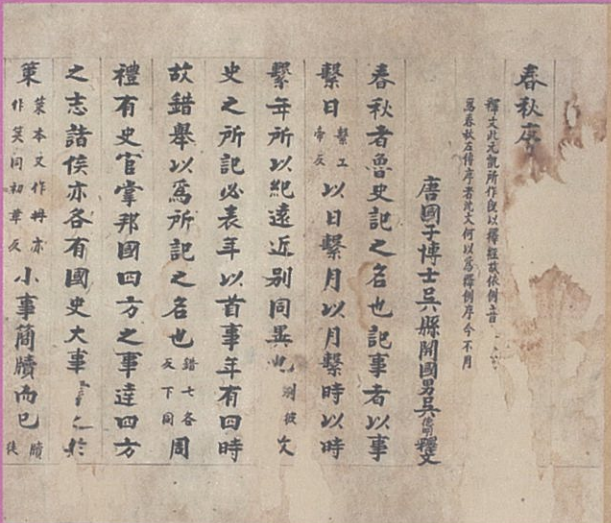 春秋序
釋文此元凱所作既以釋經故依例音
為春秋左傳序者沈文何以為釋例序今不用
唐國子博士吳縣開國男吳德明釋文
春秋者魯史記之名也記事者以事
繫日繫工帝反以日繫月以月繫時以時
繫年所以紀遠近別同異也別彼
史之所記必表年以首事年有四時
故錯舉以爲所記之名也錯七各反下同周
禮有史官掌邦國四方之事達四方
之志諸侯亦各有國史大事之於
策策本又作冊亦作筴同初革反小事簡牘而已牘徒